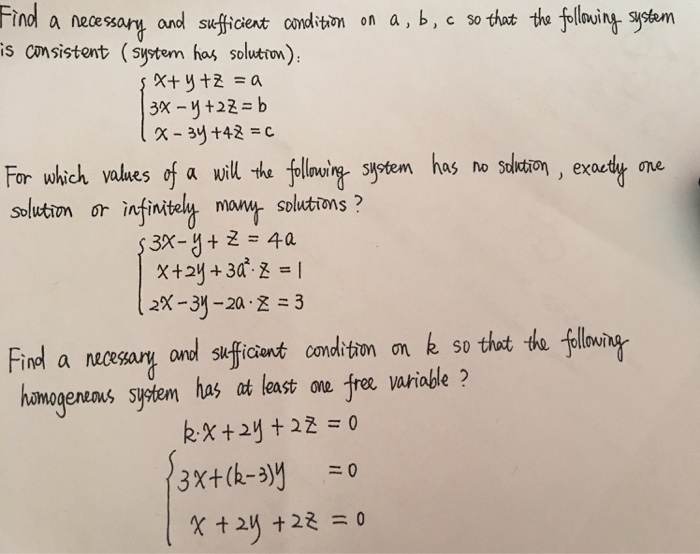 Find a necessary and sufficient condition on a, b, c so that the following system
is consistent (system has solution):
x+y+z = a
3x-y+2z = b
x-3y+4z = c
For which values of a will the following system has no solution, exactly one
solution or infinitely many solutions?
3x-y+z = 4a
x+2y+3a²·z = 1
2x-3y-2a·z = 3
Find a necessary and sufficient condition on k so that the following
homogeneous system has at least one free variable?
k·x+2y+2z = 0
3x+(k-3)y = 0
x+2y+2z = 0